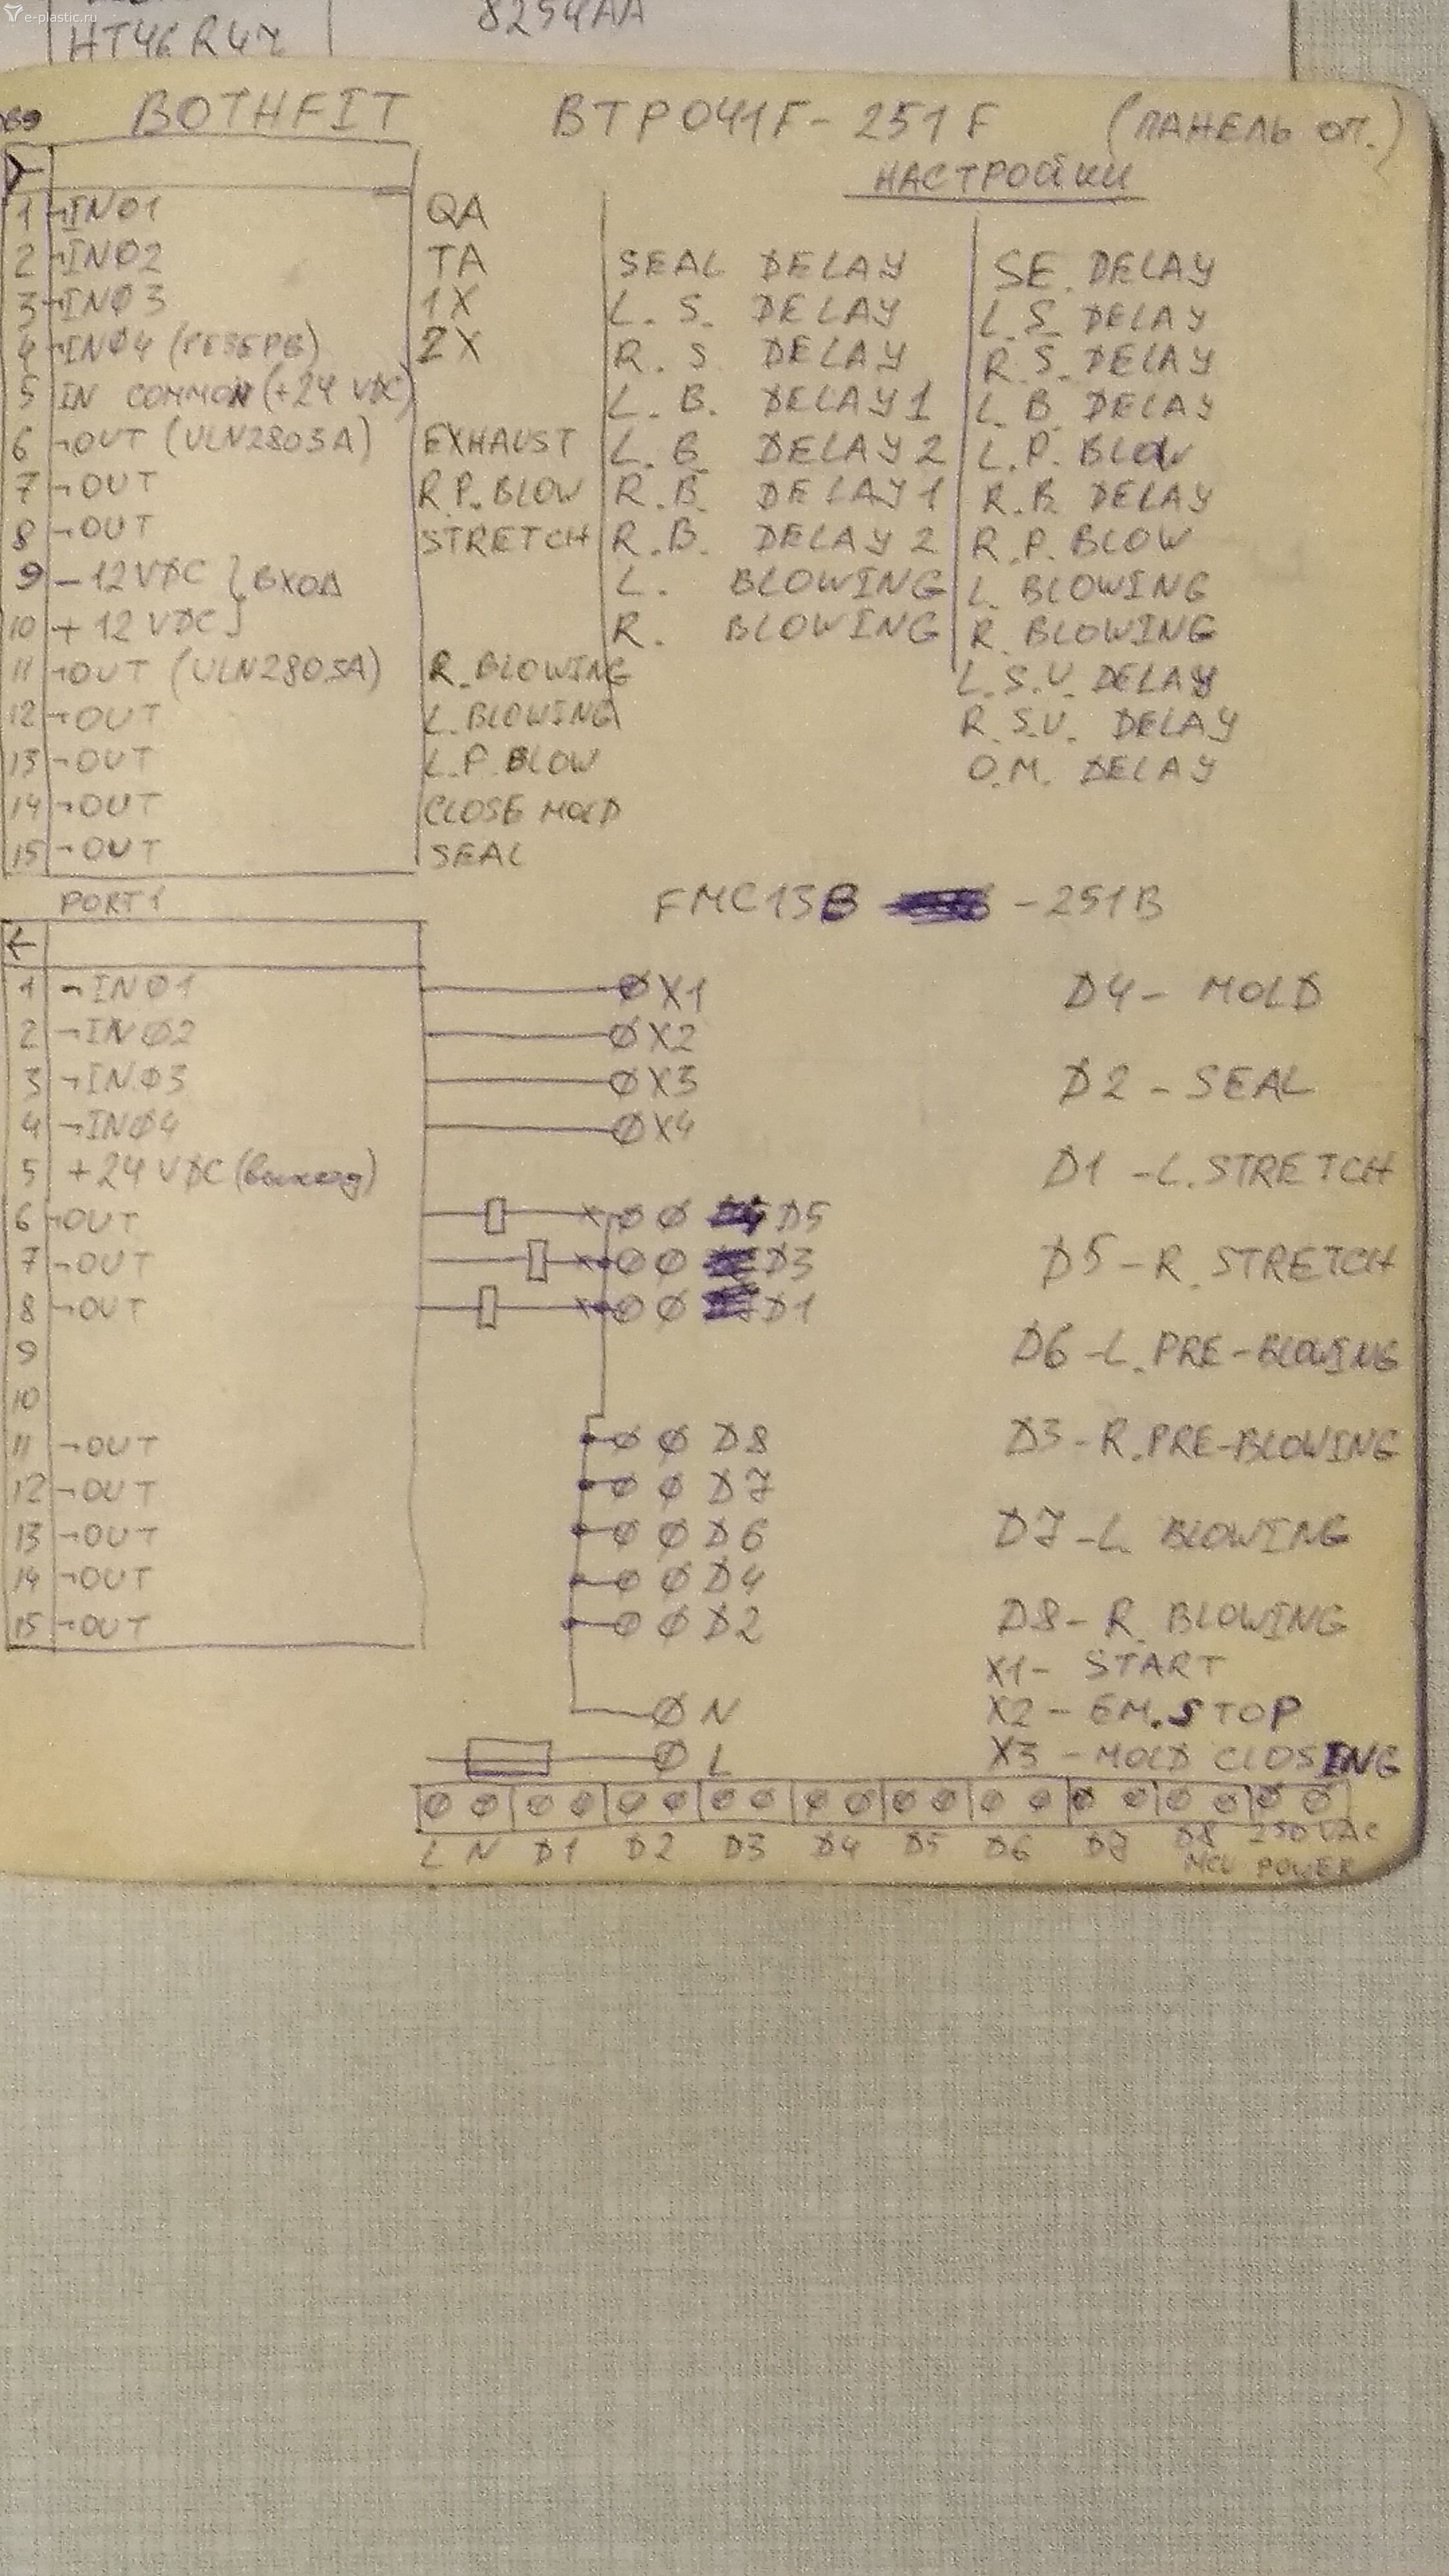 e-plastic.ru
HT46R47
8254AA
BOTHFIT BTP041F-251F (ПАНЕЛЬ ОП.)
НАСТРОЙКИ
1 ¬IN01 QA
2 ¬IN02 TA SEAL DELAY SE. DELAY
3 ¬IN03 1X L. S. DELAY L.S. DELAY
4 ¬IN04 (РЕЗЕРВ) 2X R. S. DELAY R.S. DELAY
5 IN COMMON (+24 VDC) L. B. DELAY 1 L. B. DELAY
6 ¬OUT (ULN2803A) EXHAUST L. B. DELAY 2 L.P. BLOW
7 ¬OUT R.P.BLOW R.B. DELAY 1 R.B. DELAY
8 ¬OUT STRETCH R.B. DELAY 2 R.P. BLOW
9 – 12VDC } ВХОД L. BLOWING L. BLOWING
10 + 12VDC R. BLOWING R. BLOWING
11 ¬OUT (ULN2803A) R.BLOWING L.S.V. DELAY
12 ¬OUT L.BLOWING R.S.V. DELAY
13 ¬OUT L.P.BLOW O.M. DELAY
14 ¬OUT CLOSE MOLD
15 ¬OUT SEAL
PORT1 FMC13B -251B
1 ¬IN01 X1 D4 – MOLD
2 ¬IN02 X2
3 ¬IN03 X3 D2 – SEAL
4 ¬IN04 X4
5 +24 VDC (выход) D1 – L.STRETCH
6 ¬OUT D5
7 ¬OUT D3 D5 – R.STRETCH
8 ¬OUT D1
9 D6 – L.PRE-BLOWING
10
11 ¬OUT D8 D3 – R.PRE-BLOWING
12 ¬OUT D7
13 ¬OUT D6 D7 – L. BLOWING
14 ¬OUT D4
15 ¬OUT D2 D8 – R. BLOWING
X1 – START
N X2 – EM.STOP
L X3 – MOLD CLOSING
L N D1 D2 D3 D4 D5 D6 D7 D8 250VAC
MCU POWER